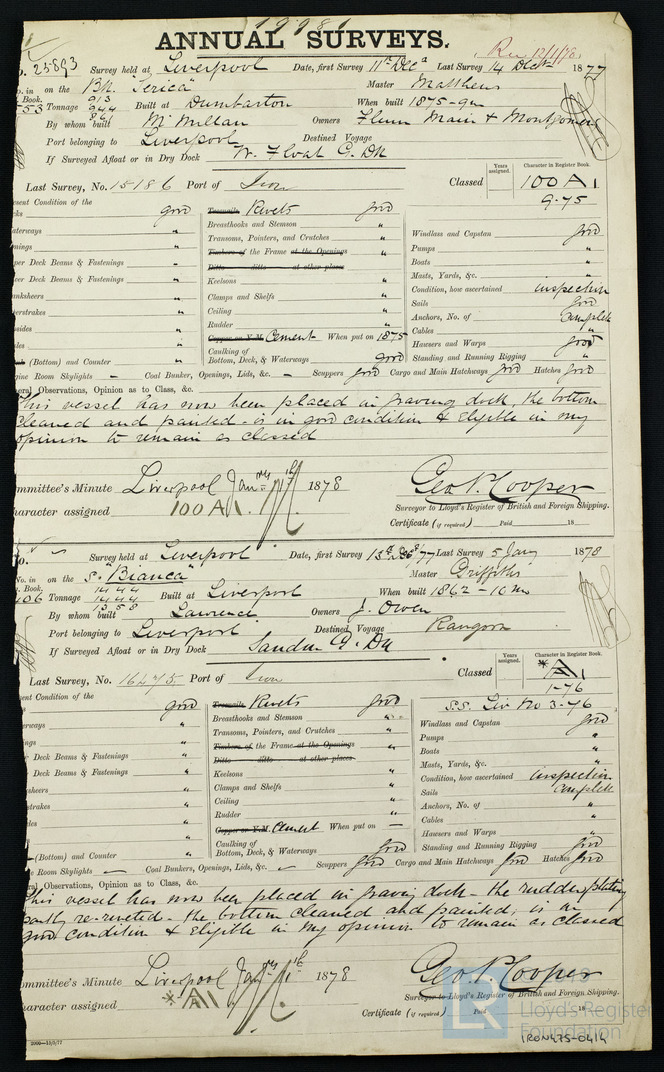 19981
ANNUAL SURVEYS.
Rec 12/1/78
o. 25893 Survey held at Liverpool Date, first Survey 11th Decr Last Survey 14 Decr 1877
o. in on the Bk. "Serica" Master Matthews
Book. 913
553 Tonnage 944 Built at Dumbarton When built 1875-9m
861
By whom built McMillan Owners Flinn Main & Montgomery
Port belonging to Liverpool Destined Voyage
If Surveyed Afloat or in Dry Dock W. Float G. Dk
Last Survey, No. 15186 Port of Iron Classed Years assigned. Character in Register Book. 100 A1
9.75
esent Condition of the
cks good Treenails Rivets good
Breasthooks and Stemson "
aterways " Transoms, Pointers, and Crutches " Windlass and Capstan good
nings " Timbers of the Frame at the Openings " Pumps "
per Deck Beams & Fastenings " Ditto ditto at other places Boats "
er Deck Beams & Fastenings " Keelsons " Masts, Yards, &c. "
nksheers " Clamps and Shelfs " Condition, how ascertained inspection
erstrakes " Ceiling " Sails good
sides " Rudder " Anchors, No. of complete
les " Copper or Y.M. Cement When put on 1875 Cables "
(Bottom) and Counter " Caulking of Bottom, Deck, & Waterways good Hawsers and Warps good
Standing and Running Rigging "
gine Room Skylights — Coal Bunker, Openings, Lids, &c. — Scuppers good Cargo and Main Hatchways good Hatches good
eral Observations, Opinion as to Class, &c.
This vessel has now been placed in graving dock, the bottom
cleaned and painted - is in good condition & Eligible in my
opinion to remain as classed
mmittee's Minute Liverpool Jany 1878 Geo. P. Cooper
haracter assigned 100 A1. Surveyor to Lloyd's Register of British and Foreign Shipping.
Certificate (if required) Paid 18
o. Survey held at Liverpool Date, first Survey 13th Decr/77 Last Survey 5 Jany 1878
No. in on the S. "Bianca" Master Griffiths
Book. 1444
106 Tonnage 1444 Built at Liverpool When built 1862-10m
1358
By whom built Lawrence Owners J. Owen
Port belonging to Liverpool Destined Voyage Rangoon
If Surveyed Afloat or in Dry Dock Sandon G. Dk
Last Survey, No. 16475 Port of Iron Classed Years assigned. Character in Register Book. *A1
1-76
S.S. Liv No 3-76
ent Condition of the
good Treenails Rivets good
erways " Breasthooks and Stemson " Windlass and Capstan good
ings " Transoms, Pointers, and Crutches " Pumps "
Timbers of the Frame at the Openings " Boats "
r Deck Beams & Fastenings " Ditto ditto at other places Masts, Yards, &c. "
Deck Beams & Fastenings " Keelsons " Condition, how ascertained inspection
sheers " Clamps and Shelfs " Sails complete
strakes " Ceiling " Anchors, No. of "
des " Rudder " Cables "
Copper or Y.M. Cement When put on — Hawsers and Warps "
(Bottom) and Counter " Caulking of Bottom, Deck, & Waterways good Standing and Running Rigging good
e Room Skylights — Coal Bunkers, Openings, Lids, &c. — Scuppers good Cargo and Main Hatchways good Hatches good
ral Observations, Opinion as to Class, &c.
This vessel has now been placed in graving dock - the rudder plating
partly re-riveted - the bottom cleaned and painted, is in
good condition & Eligible in my opinion to remain as classed
mmittee's Minute Liverpool Jany 1878 Geo. P. Cooper
haracter assigned *A1 Surveyor to Lloyd's Register of British and Foreign Shipping.
Certificate (if required) Paid 18
2000—13/9/77
Lloyd's Register
Foundation
IRON475-0414